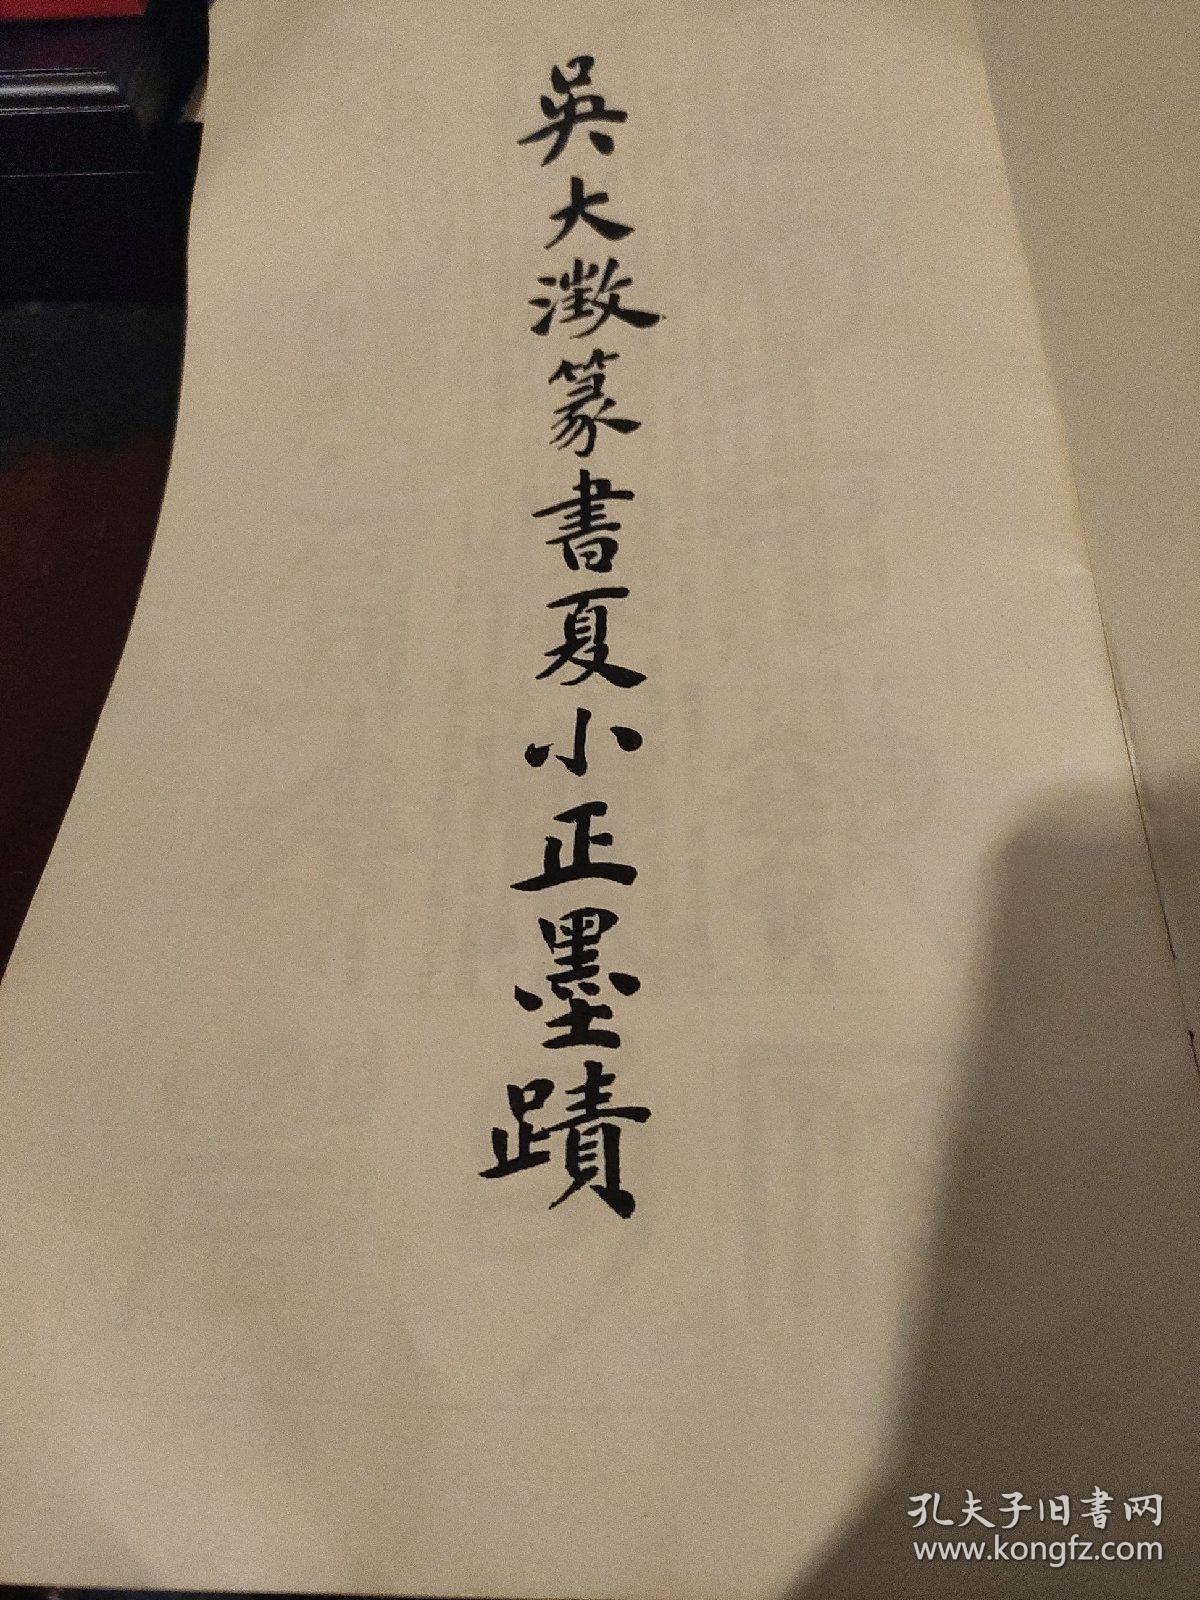 吳大澂篆書夏小正墨蹟
孔夫子旧書网
www.kongfz.com